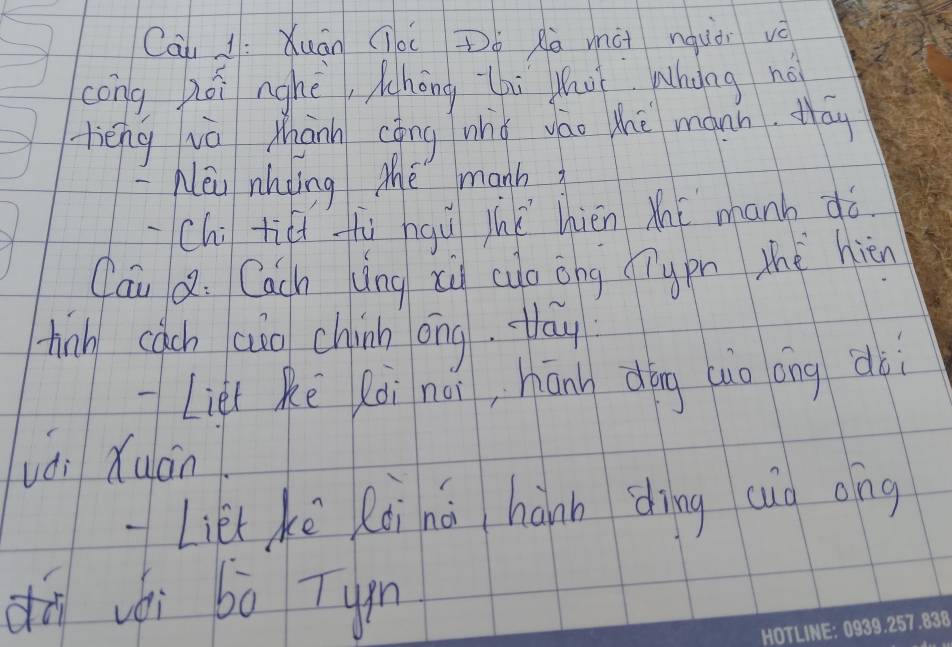 Câu 1: Xuân Tóc Đỏ là một người vô
công rồi nghề, không tri thức. Nhưng nổi
tiếng và thành công nhờ vào thế mạnh. Hãy
- Nêu những thế mạnh?
- Chi tiết từ ngữ thể hiện thế mạnh đó.
Câu 2: Cách ứng xử của ông Typn thể hiện
tính cách của chính ông. Hãy:
- Liệt kê lời nói, hành động của ông đối
với Xuân.
- Liệt kê lời nói, hành động của ông
đối với bà Typn.
HOTLINE: 0939.257.838